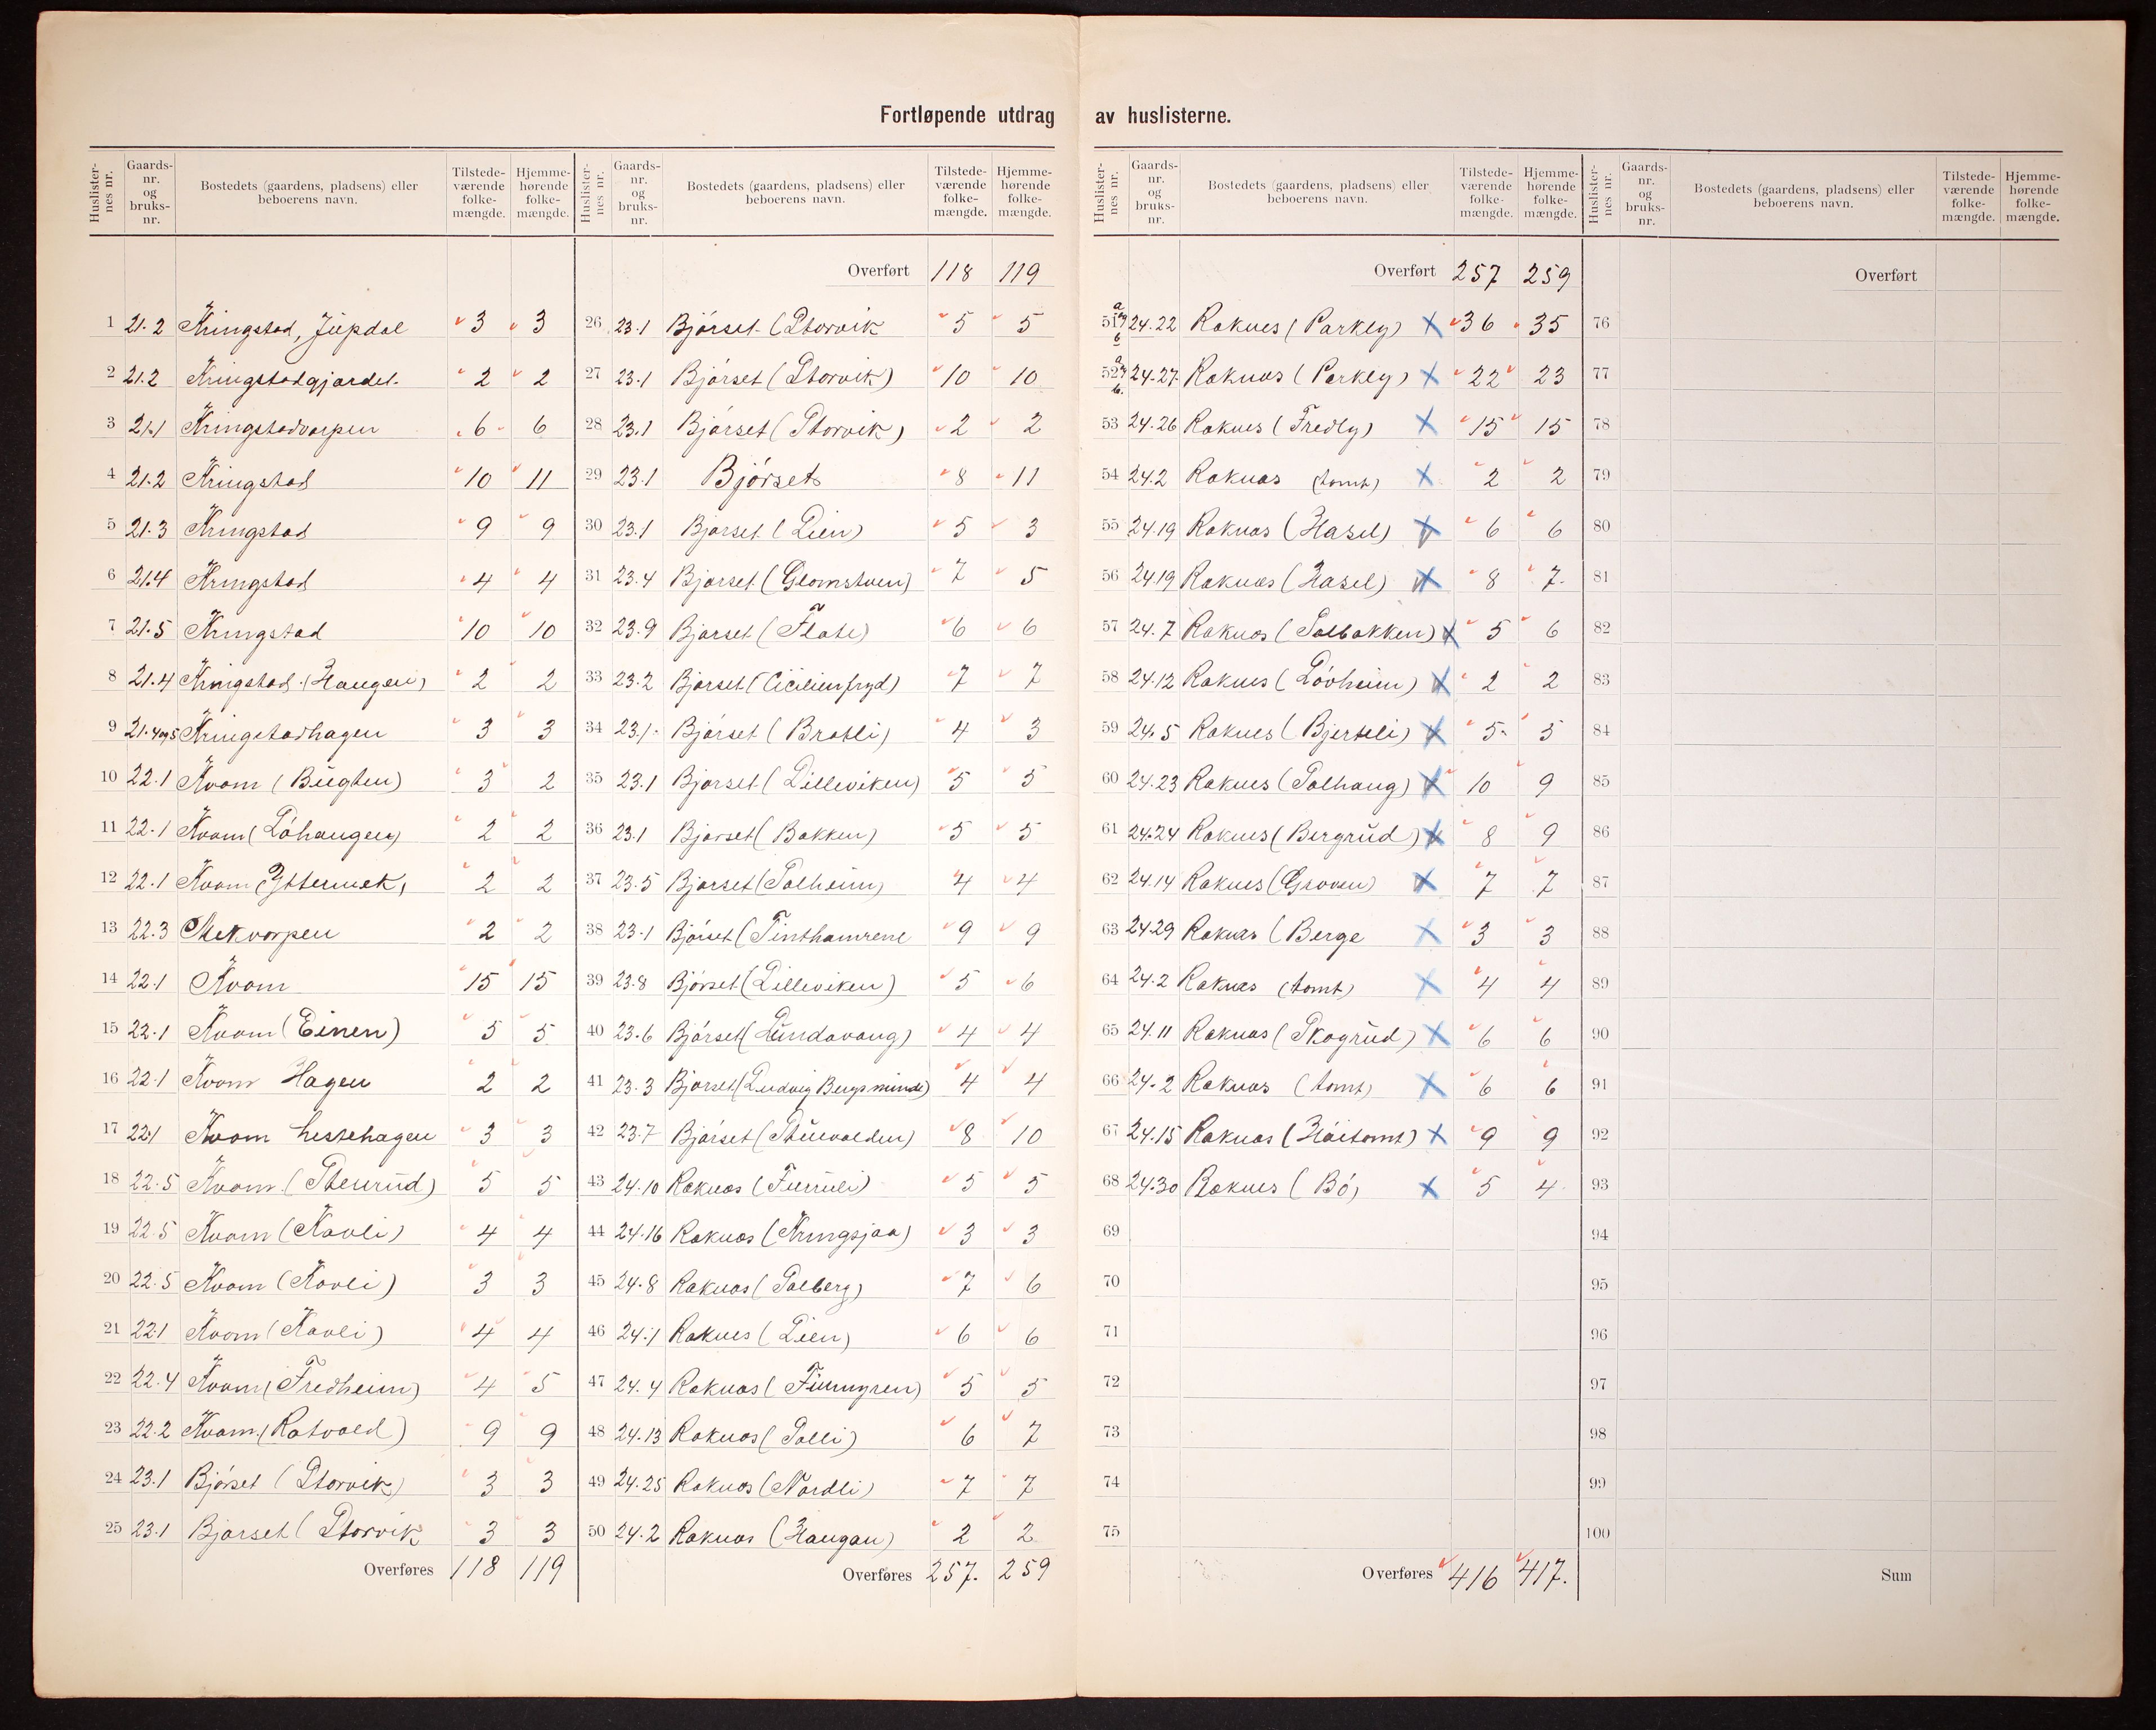 Fortløpende utdrag av huslisterne.
Huslisternes nr. Gaards-nr. og bruks-nr. Bostedets (gaardens, pladsens) eller beboerens navn. Tilstedeværende folkemængde. Hjemmehørende folkemængde.
1 21.2 Kringstad, Jupdal 3 3
2 21.2 Kringstadgjardet. 2 2
3 21.1 Kringstadvorpen 6 6
4 21.2 Kringstad 10 11
5 21.3 Kringstad 9 9
6 21.4 Kringstad 4 4
7 21.5 Kringstad 10 10
8 21.4 Kringstad (Haugen) 2 2
9 21.4og5 Kringstadhagen 3 3
10 22.1 Kvam (Bugten) 3 2
11 22.1 Kvam (Löhaugen) 2 2
12 22.1 Kvam (Yttermek) 2 2
13 22.3 Mekvorpen 2 2
14 22.1 Kvam 15 15
15 22.1 Kvam (Einen) 5 5
16 22.1 Kvam Hagen 2 2
17 22.1 Kvam Lessehagen 3 3
18 22.5 Kvam (Stenrud) 5 5
19 22.5 Kvam (Kavli) 4 4
20 22.5 Kvam (Kavli) 3 3
21 22.1 Kvam (Kavli) 4 4
22 22.4 Kvam (Fredheim) 4 5
23 22.2 Kvam (Ratvold) 9 9
24 23.1 Björset (Storvik) 3 3
25 23.1 Björset (Storvik 3 3
Overføres 118 119
Huslisternes nr. Gaards-nr. og bruks-nr. Bostedets (gaardens, pladsens) eller beboerens navn. Tilstedeværende folkemængde. Hjemmehørende folkemængde.
Overført 118 119
26 23.1 Björset (Storvik 5 5
27 23.1 Björset (Storvik) 10 10
28 23.1 Björset (Storvik) 2 2
29 23.1 Björset 8 11
30 23.1 Björset (Lien) 5 3
31 23.4 Björset (Glomstuen) 7 5
32 23.9 Björset (Flate) 6 6
33 23.2 Björset (Cicilienfryd) 7 7
34 23.1 Björset (Bratli) 4 3
35 23.1 Björset (Lilleviken) 5 5
36 23.1 Björset (Bakken) 5 5
37 23.5 Björset (Solheim) 4 4
38 23.1 Björset (Tinthamrene 9 9
39 23.8 Björset (Lilleviken) 5 6
40 23.6 Björset (Lundavang) 4 4
41 23.3 Björset (Ludvig Bergsminde) 4 4
42 23.7 Björset (Stuevolden) 8 10
43 24.10 Roknes (Furruli) 5 5
44 24.16 Roknes (Kringsjaa) 3 3
45 24.8 Roknes (Solberg) 7 6
46 24.1 Roknes (Lien) 6 6
47 24.4 Roknes (Furumyren) 5 5
48 24.13 Roknes (Solli) 6 7
49 24.25 Roknes (Nordli) 7 7
50 24.2 Roknes (Haugan) 2 2
Overføres 257. 259
Huslisternes nr. Gaards-nr. og bruks-nr. Bostedets (gaardens, pladsens) eller beboerens navn. Tilstedeværende folkemængde. Hjemmehørende folkemængde.
Overført 257 259
51 a og b 24.22 Roknes (Parkly) X 36 35
52 a og b. 24.27 Roknes (Parkly) X 22 23
53 24.26 Roknes (Fredly) X 15 15
54 24.2 Roknes (tomt) X 2 2
55 24.19 Roknes (Hasel) X 6 6
56 24.19 Roknes (Hasel) X 8 7.
57 24.7 Roknes (Solbakken) X 5 6
58 24.12 Roknes (Lövheim) X 2 2
59 24.5 Roknes (Bjerkeli) X 5 5
60 24.23 Roknes (Solhaug) X 10 9
61 24.24 Roknes (Bergrud) X 8 9
62 24.14 Roknes (Groven) X 7 7
63 24.29 Roknes (Berge X 3 3
64 24.2 Roknes (tomt) X 4 4
65 24.11 Roknes (Skogrud) X 6 6
66 24.2 Roknes (tomt) X 6 6
67 24.15 Roknes (Höitomt) X 9 9
68 24.30 Roknes (Bö) X 5 4
69
70
71
72
73
74
75
Overføres 416 417.
Huslisternes nr. Gaards-nr. og bruks-nr. Bostedets (gaardens, pladsens) eller beboerens navn. Tilstedeværende folkemængde. Hjemmehørende folkemængde.
Overført
76
77
78
79
80
81
82
83
84
85
86
87
88
89
90
91
92
93
94
95
96
97
98
99
100
Sum